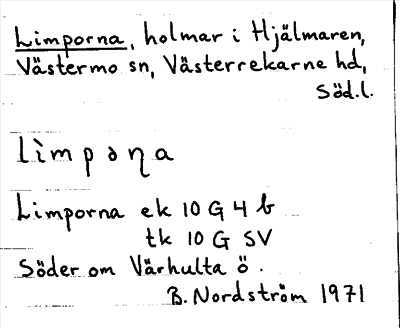 Limporna, holmar i Hjälmaren,
Västermo sn, Västerrekarne hd,
Söd.l.
lìmpəɳa
Limporna ek 10 G 4 b
tk 10 G SV
Söder om Värhulta ö.
B. Nordström 1971